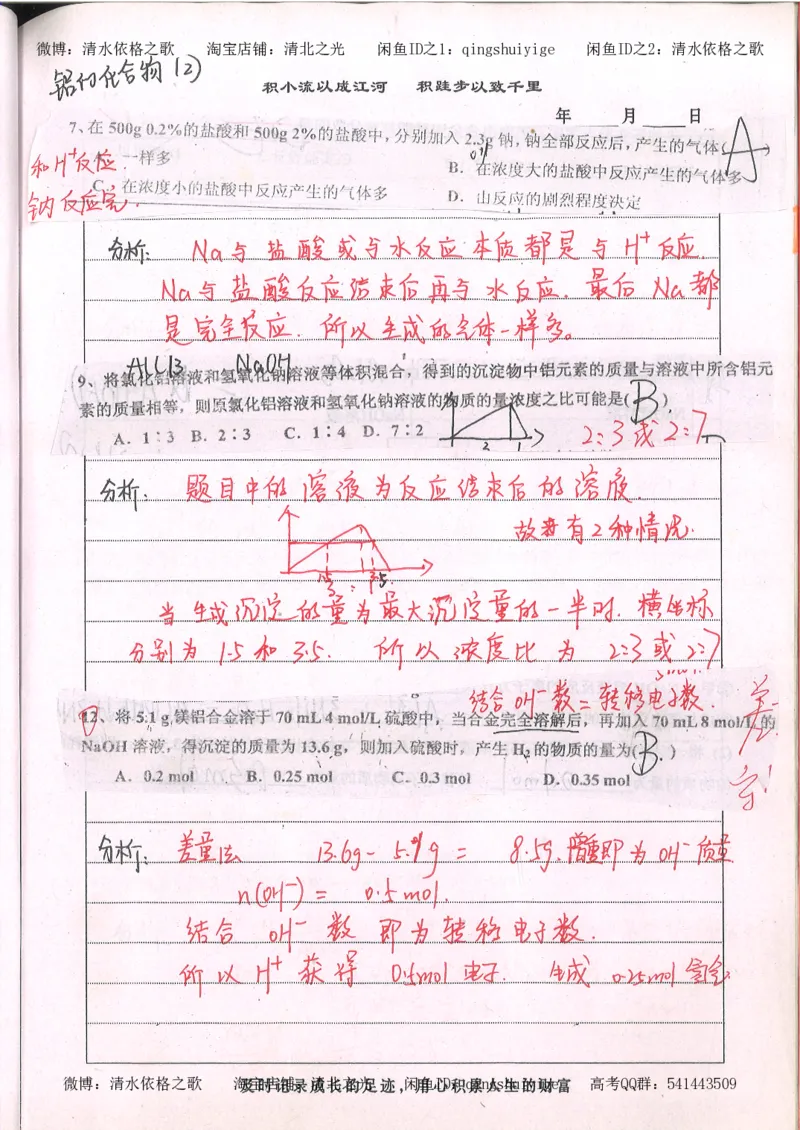 微博：清水依格之歌 淘宝店铺：清北之光 闲鱼ID之1：qingshuiyige 闲鱼ID之2：清水依格之歌
铝的化合物(2)
积小流以成江河 积跬步以致千里
年 月 日
7、在 500g 0.2%的盐酸和 500g 2%的盐酸中，分别加入 2.3g 钠，钠全部反应后，产生的气体( A )
0.1
和H⁺反应. 一样多 B. 在浓度大的盐酸中反应产生的气体多
钠反应完. C. 在浓度小的盐酸中反应产生的气体多 D. 由反应的剧烈程度决定
分析: Na与盐酸或与水反应本质都是与H⁺反应.
Na与盐酸反应结束后再与水反应. 最后Na都
是完全反应. 所以生成的气体一样多。
AlCl3 NaOH
9、将氯化铝溶液和氢氧化钠溶液等体积混合，得到的沉淀物中铝元素的质量与溶液中所含铝元
素的质量相等，则原氯化铝溶液和氢氧化钠溶液的物质的量浓度之比可能是( B )
A. 1∶3 B. 2∶3 C. 1∶4 D. 7∶2 2:3或2:7
分析. 题目中的溶液为反应结束后的溶液.
故有2种情况.
当生成沉淀的量为最大沉淀量的一半时. 横坐标
分别为 1.5 和 3.5. 所以浓度比为 2:3 或 2:7
结合OH⁻数=转移电子数. 差
12、将 5.1 g 镁铝合金溶于 70 mL 4 mol/L 硫酸中，当合金完全溶解后，再加入 70 mL 8 mol/L 的
NaOH 溶液，得沉淀的质量为 13.6 g，则加入硫酸时，产生 H₂ 的物质的量为( B. )
A. 0.2 mol B. 0.25 mol C. 0.3 mol D. 0.35 mol
守
分析: 差量法 13.6g - 5.1g = 8.5g. 即为OH⁻质量
n(OH⁻) = 0.5 mol.
结合 OH⁻ 数 即为转移电子数.
所以 H⁺ 获得 0.5mol 电子. 生成 0.25mol 氢气
微博：清水依格之歌 淘宝店铺：清北之光 闲鱼ID：qingshuiyige 高考QQ群：541443509
及时记录成长的足迹，用心积累人生的财富